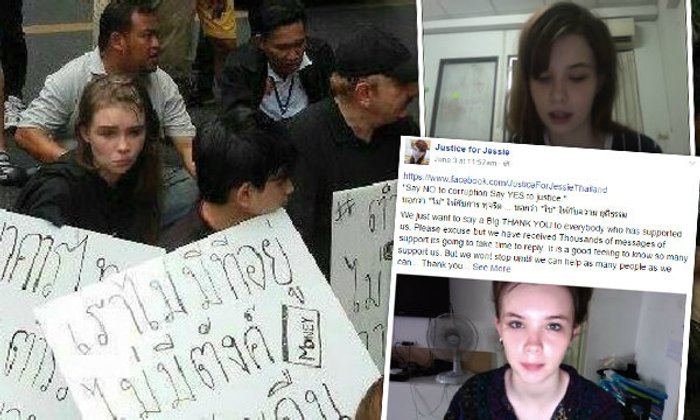 เราไม่มีที่อยู่
ไม่มีตังค์
MONEY
Justice for Jessie
June 3 at 11:57am
https://www.facebook.com/JusticeForJessieThailand
"Say NO to corruption Say YES to justice "
บอกว่า "ไม่" ให้กับการ ทุจริต ... บอกว่า "ใช่" ให้กับความ ยุติธรรม
We just want to say a Big THANK YOU to everybody who has supported
us. Please excuse but we have received Thousands of messages of
support its going to take time to reply. It is a good feeling to know so many
support us. But we wont stop until we can help as many people as we
can... Thank you... See More